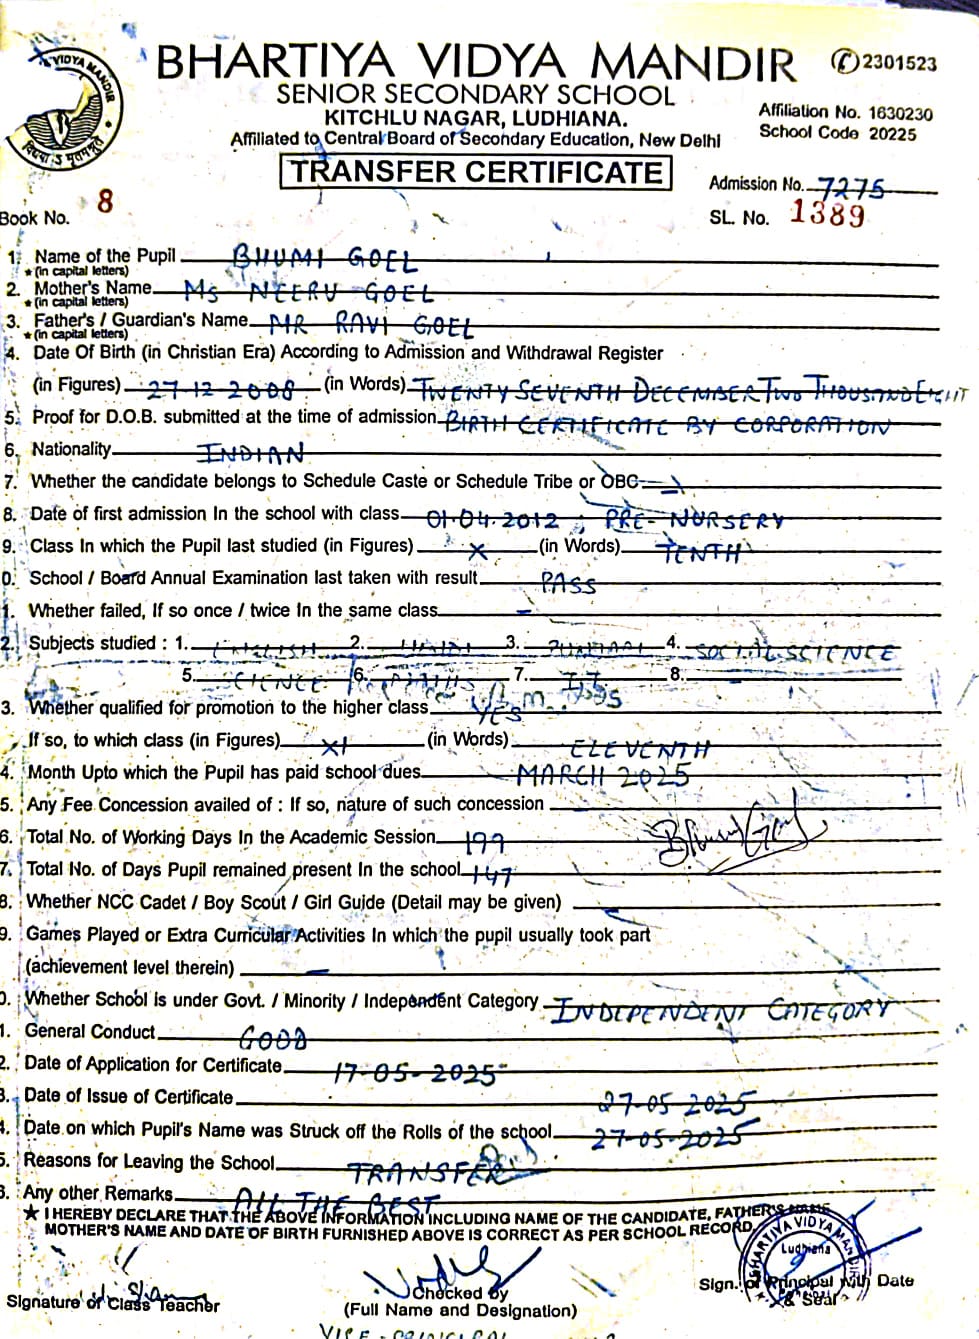 VIDYA MANDIR
BHARTIYA VIDYA MANDIR
2301523
SENIOR SECONDARY SCHOOL
KITCHLU NAGAR, LUDHIANA.
Affiliation No. 1630230
Affiliated to Central Board of Secondary Education, New Delhi
School Code 20225
TRANSFER CERTIFICATE
Admission No. 7275
Book No. 8
SL. No. 1389
1. Name of the Pupil BHUMI GOEL
★(in capital letters)
2. Mother's Name Ms NEERU GOEL
★(in capital letters)
3. Father's / Guardian's Name MR RAVI GOEL
★(in capital letters)
4. Date Of Birth (in Christian Era) According to Admission and Withdrawal Register
(in Figures) 27-12-2008 (in Words) TWENTY SEVENTH DECEMBER TWO THOUSAND EIGHT
5. Proof for D.O.B. submitted at the time of admission BIRTH CERTIFICATE BY CORPORATION
6. Nationality INDIAN
7. Whether the candidate belongs to Schedule Caste or Schedule Tribe or OBC —
8. Date of first admission In the school with class 01.04.2012 ; PRE-NURSERY
9. Class In which the Pupil last studied (in Figures) X (in Words) TENTH
0. School / Board Annual Examination last taken with result PASS
1. Whether failed, If so once / twice In the same class —
2. Subjects studied : 1. ENGLISH 2. HINDI 3. PUNJABI 4. SOCIAL SCIENCE
5. SCIENCE 6. MATHS 7. I.T. 8.
3. Whether qualified for promotion to the higher class YES
If so, to which class (in Figures) XI (in Words) ELEVENTH
4. Month Upto which the Pupil has paid school dues MARCH 2025
5. Any Fee Concession availed of : If so, nature of such concession
6. Total No. of Working Days In the Academic Session 199
7. Total No. of Days Pupil remained present In the school 147
8. Whether NCC Cadet / Boy Scout / Girl Guide (Detail may be given)
9. Games Played or Extra Curricular Activities In which the pupil usually took part
(achievement level therein) —
0. Whether School is under Govt. / Minority / Independent Category INDEPENDENT CATEGORY
1. General Conduct GOOD
2. Date of Application for Certificate 17-05-2025
3. Date of Issue of Certificate 27-05 2025
4. Date on which Pupil's Name was Struck off the Rolls of the school 27-05-2025
5. Reasons for Leaving the School TRANSFER
6. Any other Remarks ALL THE BEST
★ I HEREBY DECLARE THAT THE ABOVE INFORMATION INCLUDING NAME OF THE CANDIDATE, FATHER'S NAME
MOTHER'S NAME AND DATE OF BIRTH FURNISHED ABOVE IS CORRECT AS PER SCHOOL RECORD.
BHARTIYA VIDYA MANDIR
Ludhiana
Signature of Class Teacher
Checked By
(Full Name and Designation)
Sign. of Principal with Date
& Seal
VICE-PRINCIPAL